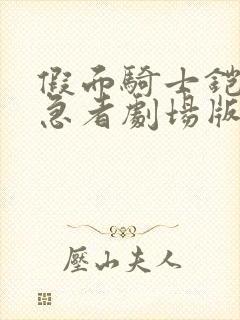 假面騎士鎧
急者劇場版
壓山夫人